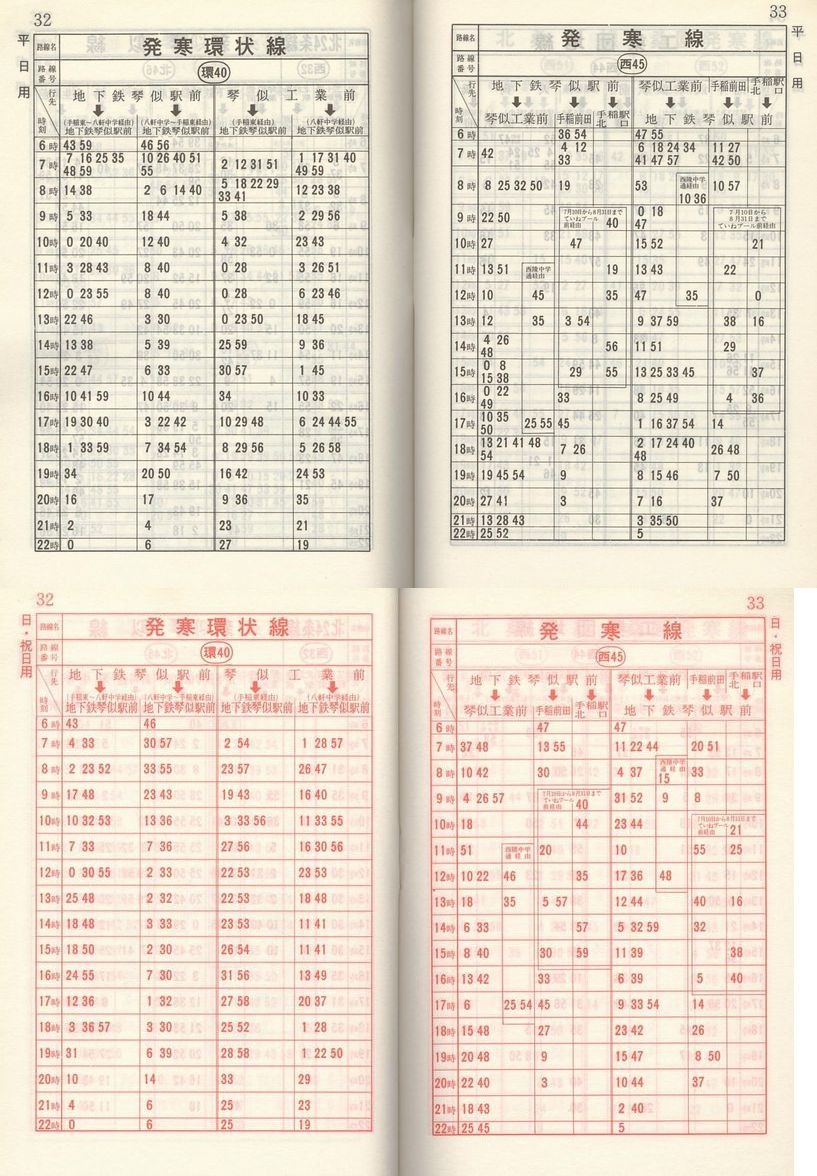 32
平日用
路線名 発寒環状線
路線番号 環40
行先 時刻 地下鉄琴似駅前 琴似工業前
(手稲東～八軒中学経由) 地下鉄琴似駅前 (八軒中学～手稲東経由) 地下鉄琴似駅前 (手稲東経由) 地下鉄琴似駅前 (八軒中学経由) 地下鉄琴似駅前
6時 43 59 46 56
7時 7 16 25 35 48 59 10 26 40 51 55 2 12 31 51 1 17 31 40 49 59
8時 14 38 2 6 14 40 5 18 22 29 33 41 12 23 38
9時 5 33 18 44 5 38 2 29 56
10時 0 20 40 12 40 4 32 23 43
11時 3 28 43 8 40 0 28 3 26 51
12時 0 23 55 8 40 0 28 6 23 46
13時 22 46 3 30 0 23 50 18 45
14時 13 38 5 39 25 59 9 36
15時 22 47 6 33 30 57 1 45
16時 10 41 59 10 44 34 10 33
17時 19 30 40 3 22 42 10 29 48 6 24 44 55
18時 1 33 59 7 34 54 8 29 56 5 26 58
19時 34 20 50 16 42 24 53
20時 16 17 9 36 35
21時 2 4 23 21
22時 0 6 27 19
33
平日用
路線名 発寒線
路線番号 西45
行先 時刻 地下鉄琴似駅前 琴似工業前 手稲前田 手稲駅北口
琴似工業前 手稲前田 手稲駅北口 地下鉄琴似駅前
6時 36 54 47 55
7時 42 4 12 33 6 18 24 34 41 47 57 11 27 42 50
8時 8 25 32 50 19 53 西陵中学通経由 10 36 10 57
9時 22 50 7月10日から8月31日までていねプール前経由 40 0 18 47 7月10日から8月31日までていねプール前経由
10時 27 47 15 52 21
11時 13 51 西陵中学通経由 19 13 43 22
12時 10 45 35 47 35 0
13時 12 35 3 54 9 37 59 38 16
14時 4 26 48 56 11 51 29
15時 0 8 15 38 29 55 13 25 33 45 37
16時 0 22 49 33 8 25 49 4 36
17時 10 35 50 25 55 45 1 16 37 54 14
18時 13 21 41 48 54 7 26 2 17 24 40 48 26 48
19時 19 45 54 9 8 15 46 7 50
20時 27 41 3 7 16 37
21時 13 28 43 3 35 50
22時 25 52 5
32
日・祝日用
路線名 発寒環状線
路線番号 環40
行先 時刻 地下鉄琴似駅前 琴似工業前
(手稲東～八軒中学経由) 地下鉄琴似駅前 (八軒中学～手稲東経由) 地下鉄琴似駅前 (手稲東経由) 地下鉄琴似駅前 (八軒中学経由) 地下鉄琴似駅前
6時 43 46
7時 4 33 30 57 2 54 1 28 57
8時 2 23 52 33 55 23 57 26 47
9時 17 48 23 43 19 43 16 40
10時 10 32 53 13 36 3 33 56 11 33 55
11時 7 33 7 36 27 56 16 30 56
12時 0 30 55 2 33 22 53 23 53
13時 25 48 2 32 22 53 18 48
14時 18 48 3 33 22 53 11 41
15時 18 50 2 30 26 54 11 41
16時 24 55 7 30 31 56 13 49
17時 12 36 1 32 27 58 20 37
18時 3 36 57 3 30 25 52 1 28
19時 31 6 39 28 58 1 22 50
20時 10 14 33 29
21時 4 6 25 23
22時 0 6 25 19
33
日・祝日用
路線名 発寒線
路線番号 西45
行先 時刻 地下鉄琴似駅前 琴似工業前 手稲前田 手稲駅北口
琴似工業前 手稲前田 手稲駅北口 地下鉄琴似駅前
6時 47 47
7時 37 48 13 55 11 22 44 20 51
8時 10 42 30 4 37 西陵中学通経由 15 33
9時 4 26 57 7月10日から8月31日までていねプール前経由 40 31 52 9 8
10時 18 44 23 44 7月10日から8月31日までていねプール前経由 21
11時 51 西陵中学通経由 20 10 55 25
12時 10 22 46 35 17 36 48
13時 18 35 5 57 12 44 40 16
14時 6 33 57 5 32 59 32
15時 8 40 30 59 11 39 38
16時 13 42 33 6 39 5 40
17時 6 25 54 45 9 33 54 14
18時 15 48 27 23 42 26
19時 20 48 9 15 47 8 50
20時 22 40 3 10 44 37
21時 18 43 2 40
22時 25 45 5